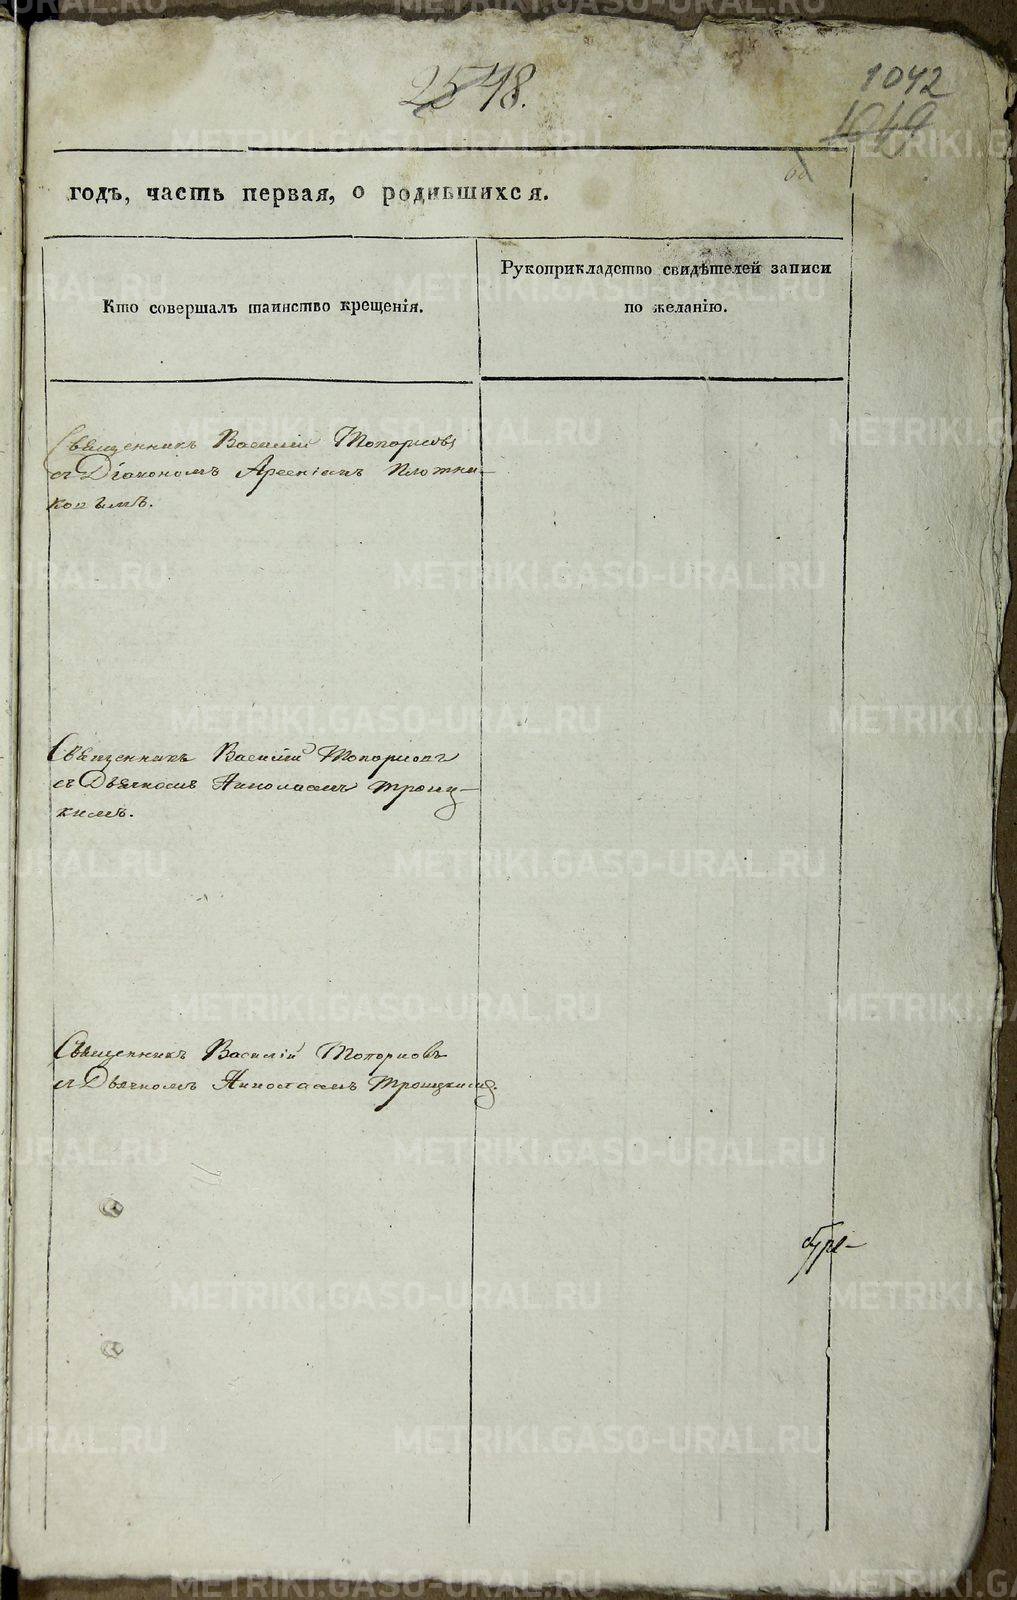 2548.
1042
1049
годъ, часть первая, о родившихся.
Кто совершалъ таинство крещенія.
Рукоприкладство свидѣтелей записи
по желанію.
Священникъ Василій Топорковъ
съ Діакономъ Арсеніемъ Плотни-
ковымъ.
Священникъ Василій Топорковъ
съ Дьячкомъ Николаемъ Троиц-
кимъ.
Священникъ Василій Топорковъ
съ Дьячкомъ Николаемъ Троицкимъ.
METRIKI.GASO-URAL.RU